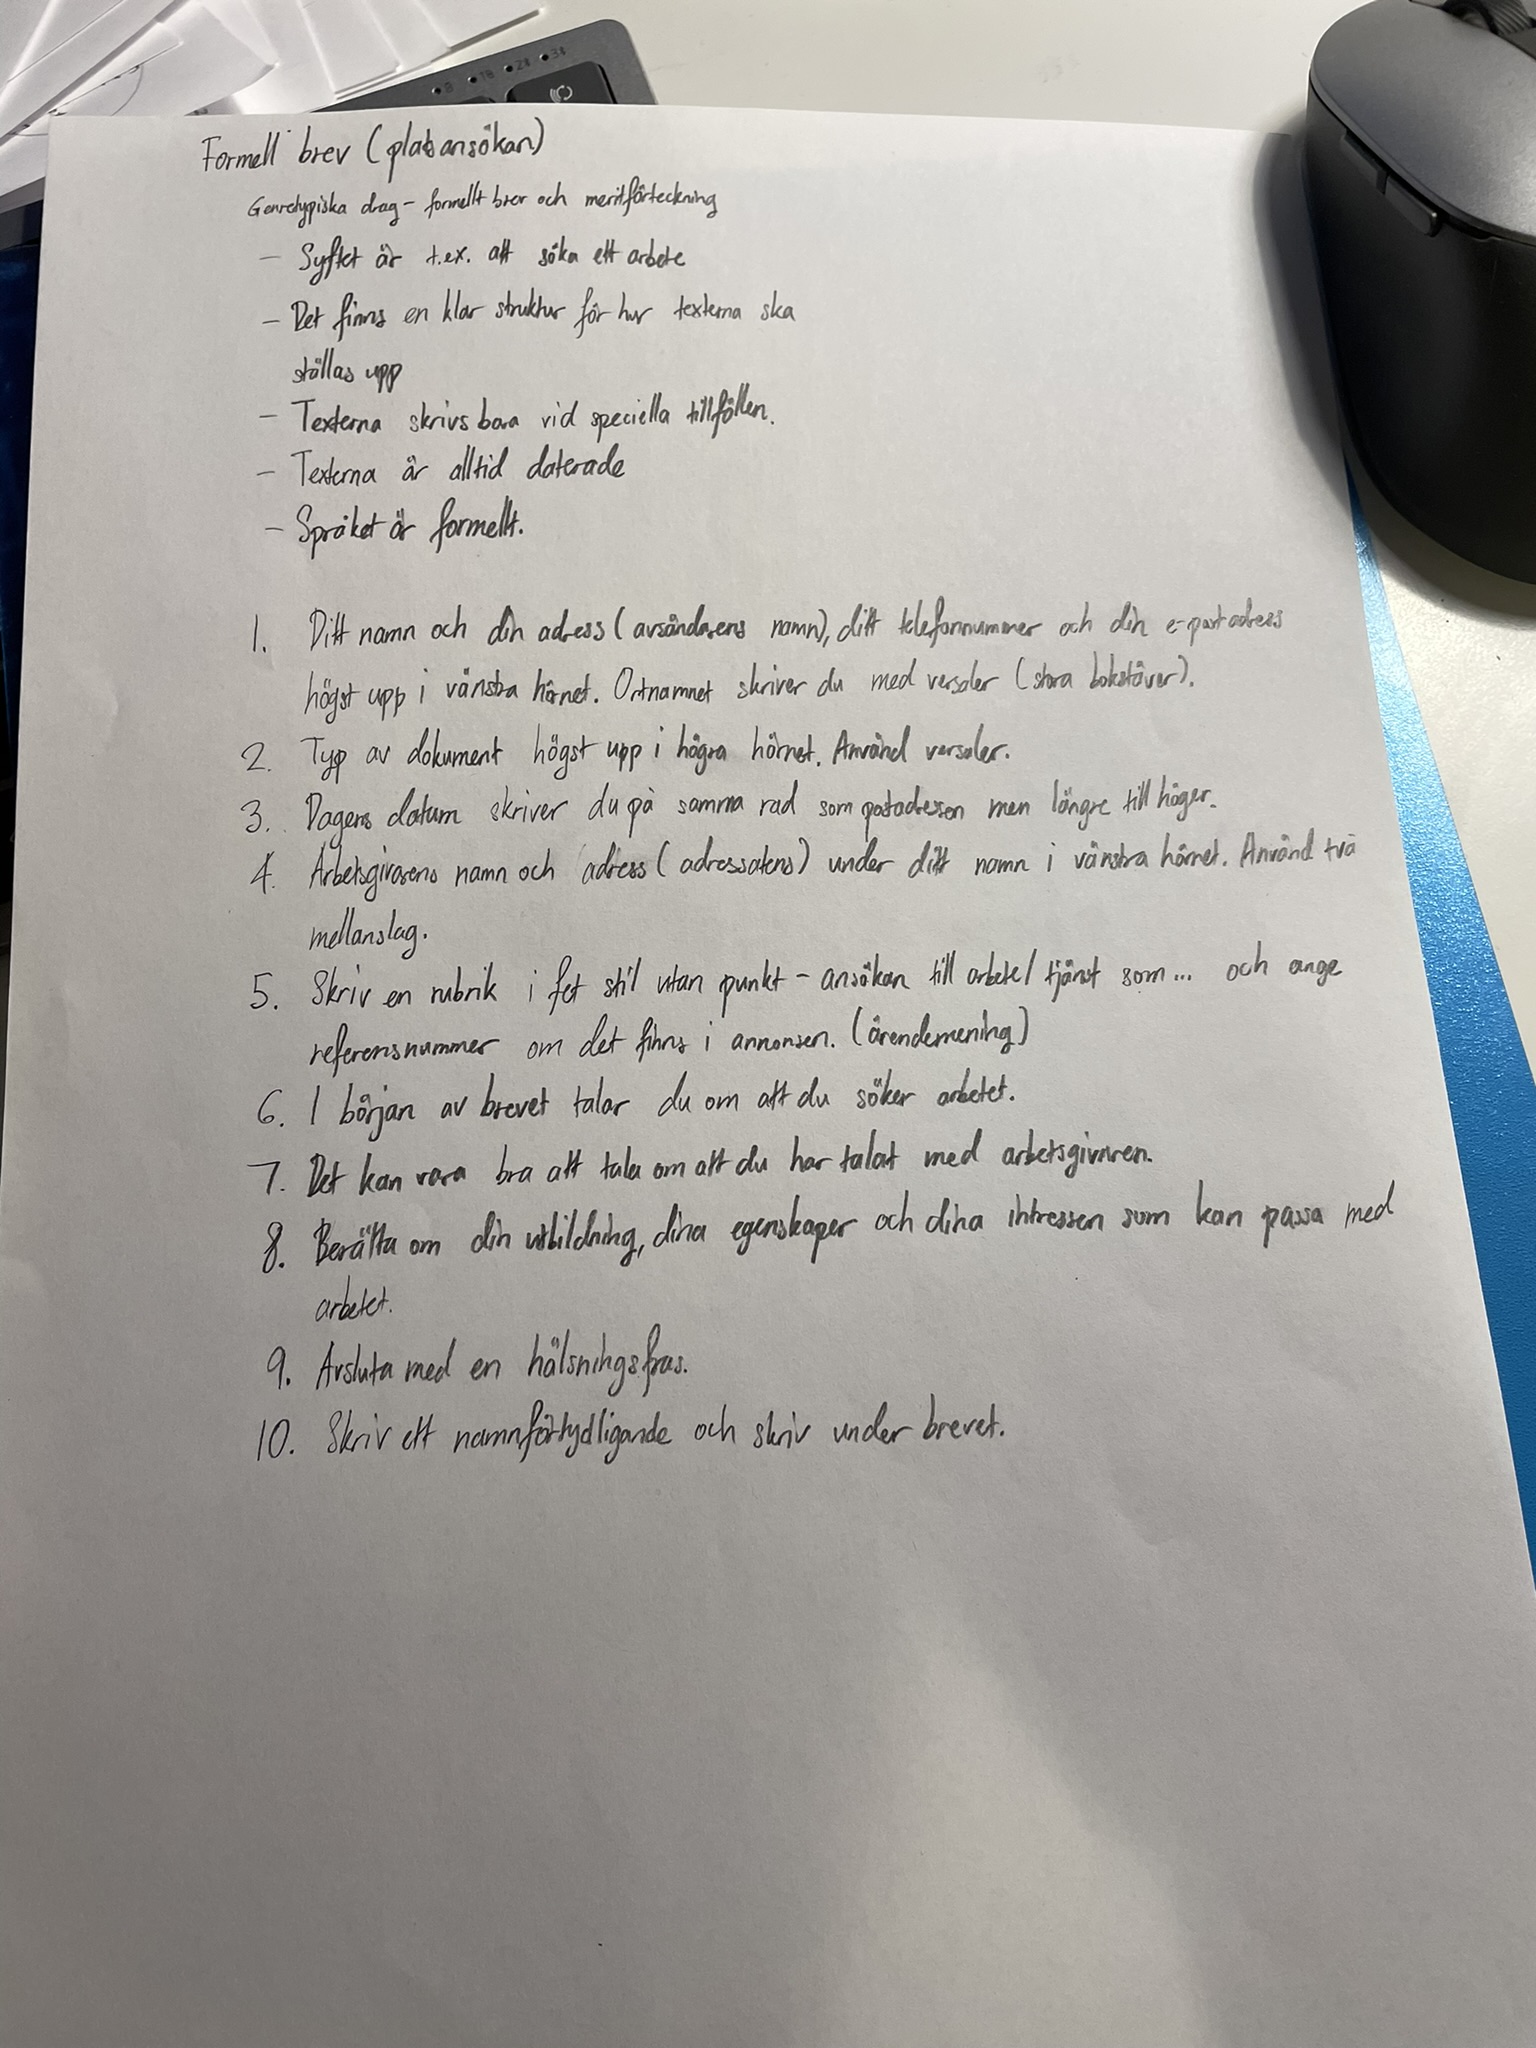 Formell brev (platsansökan)
Genretypiska drag - formellt brev och meritförteckning
- Syftet är t.ex. att söka ett arbete
- Det finns en klar struktur för hur texterna ska
ställas upp
- Texterna skrivs bara vid speciella tillfällen.
- Texterna är alltid daterade
- Språket är formellt.
1. Ditt namn och din adress (avsändarens namn), ditt telefonnummer och din e-postadress
högst upp i vänstra hörnet. Ortnamnet skriver du med versaler (stora bokstäver).
2. Typ av dokument högst upp i högra hörnet. Använd versaler.
3. Dagens datum skriver du på samma rad som postadressen men längre till höger.
4. Arbetsgivarens namn och adress (adressatens) under ditt namn i vänstra hörnet. Använd två
mellanslag.
5. Skriv en rubrik i fet stil utan punkt - ansökan till arbete/tjänst som... och ange
referensnummer om det finns i annonsen. (ärendemening)
6. I början av brevet talar du om att du söker arbetet.
7. Det kan vara bra att tala om att du har talat med arbetsgivaren.
8. Berätta om din utbildning, dina egenskaper och dina intressen som kan passa med
arbetet.
9. Avsluta med en hälsningsfras.
10. Skriv ett namnförtydligande och skriv under brevet.